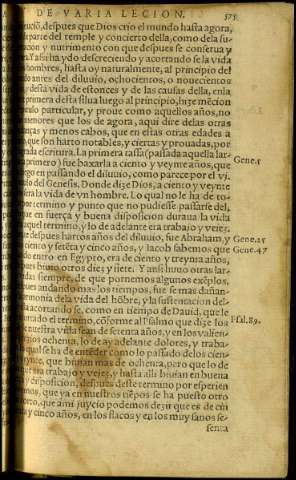 DE VARIA LECION. 375
lucio, despues que Dios crio el mundo hasta agora,
parte del temple y concierto della, como dela su
cion y nutrimento con que despues se conserua y
Y assi ha ydo descreciendo y acortando se la vida
hombres, hasta oy naturalmente, al principio del
do antes del diluuio, ochocientos, o nouecientos
y desta vida de estonces y de las causas della, en la
primera desta silua luego al principio, hize mẽcion
tulo particular, y proue como aquellos años, no
menores que los de agora, aqui dire delas otras
ças y menos cabos, que en estas otras edades a
que son harto notables, y ciertas y prouadas, por
rada escritura. La primera cassi (passada aquella lar-
primero) fue baxarla a ciento y veynte años, que Gene.1
ego en passando el diluuio, como parece por el vj.
lo del Genesis. Donde dize Dios, a ciento y veynte
sera la vida de vn hombre. Lo qual no le ha de to-
por termino y punto que no pudiesse passarse del,
que en fuerça y buena disposicion duraua la vida
aquel termino, y lo de adelante era trabajo y vejez.
por despues hartos años del diluuio, fue Abraham, y Gene.25
ciento y setẽta y cinco años, y Iacob sabemos que Gene.47
do entro en Egypto, era de ciento y treynta años,
pues biuio otros diez y siete. Y ansi huuo otras lar-
vidas siempre, de que pornemos algunos exẽplos,
pues andando mas los tiempos, fue se mas dañan-
armonia dela vida del hõbre, y la sustentacion del-
acortando se, como en tiempo de Dauid, que le
tado el termino, cõforme al Psalmo que dize los Psal.89.
nuestra vida sean de setenta años, y en los valien-
ochenta, lo de ay adelante dolores, y traba-
qual se ha de entẽder como lo passado de los cien-
veynte, que biuian mas de ochenta, pero que lo de
era trabajo y vejez, y hasta alli biuian en buena
y disposicion, despues deste termino por esperien
mos, que ya en nuestros tiẽpos se ha puesto otro
corto, que a mi juyzio podemos dezir que es de cin
ta y cinco años, en los flacos y en los muy sanos se-
senta